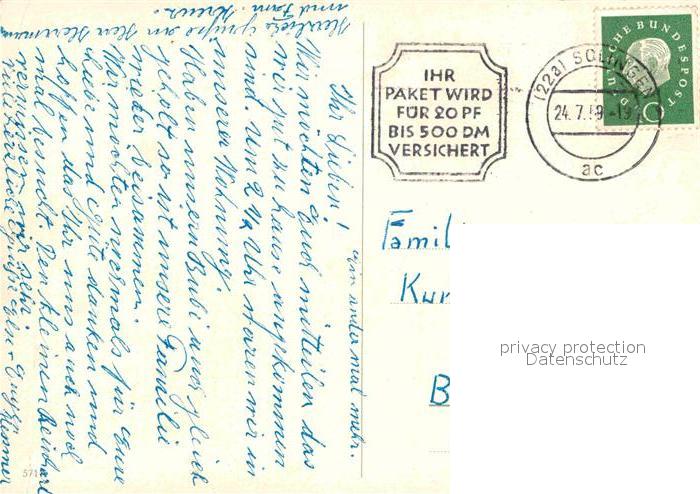 Ihr Lieben!
Wir möchten Euch mitteilen das
wir gut zu Hause angekommen
sind um 2 Uhr waren wir in
unserer Wohnung.
Haben unseren Bubi auch gleich
geholt so ist unsere Familie
wieder beisammen.
Wir möchten nochmals für Eure
Liebe und Güte danken und
hoffen das Ihr uns auch noch
mal besucht. Den kleinen
vergessen wir nicht.
Herzliche Grüße an Herr Hermann
und Fam. Kreuz.
ein andermal mehr.
IHR
PAKET WIRD
FÜR 20 PF
BIS 500 DM
VERSICHERT
(22a) SOLINGEN
24.7.
ac
DEUTSCHE BUNDESPOST
10
Famil
Kur
B
privacy protection
Datenschutz
571